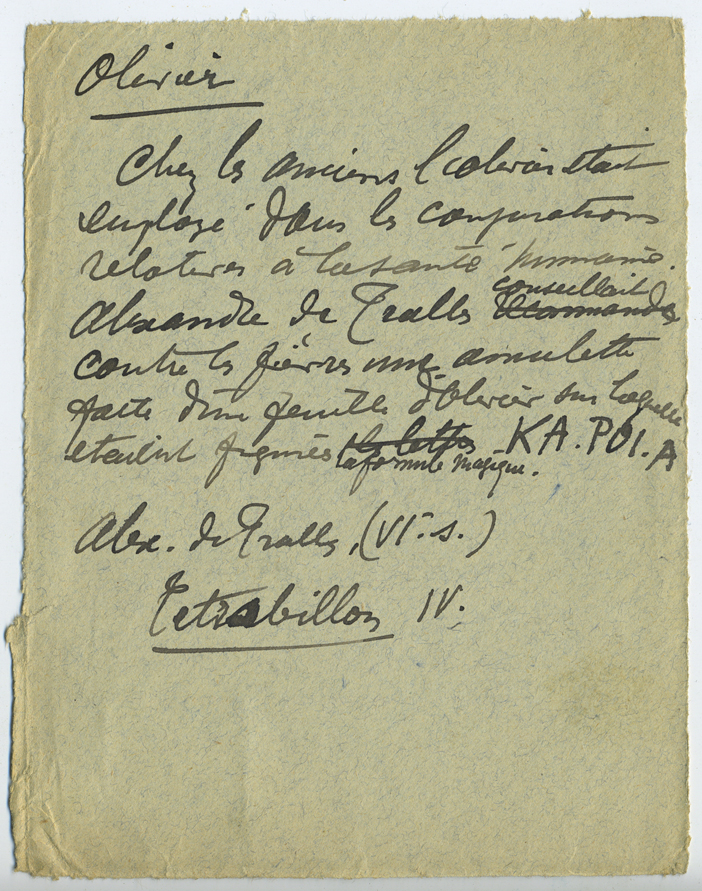 Olivier
Chez les anciens l'olivier était
employé dans les conjurations
relatives à la santé humaine.
conseillait
Alexandre de Tralles recommande
contre les fièvres une amulette
faite d'une feuille d'olivier sur laquelle
étaient figurés les lettres KA.POI.A
la formule magique.
Alex. de Tralles, (VIe s.)
Tetrabillon IV.